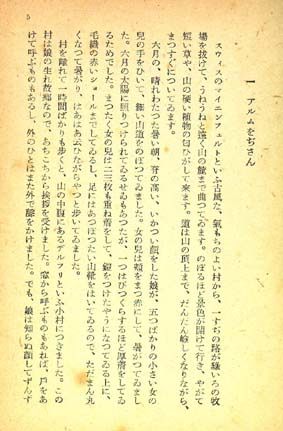 5
一 アルムをぢさん
スウィスのマイニンフェルトといふ古風な、氣もちのよい村から、一すぢの路が綠いろの牧
場を拔けて、うねうねと遠く山の麓まで曲つてゐます。のぼるほど景色が開けて行き、やがて
短い草や、山の硬い植物の匂ひがして來ます。道は山の頂上まで、だんだん嶮しくなりながら、
まつすぐについてゐます。
六月の、晴れわたつた暑い朝、脊の高い、いかつい顔をした娘が、五つばかりの小さい女の
兒の手をひいて、細い山道をのぼつてゐました。女の兒は頰をまつ赤にして、暑がつてゐまし
た。六月の太陽に照りつけられてゐるせゐもあつたが、一つはびつくりするほど厚着をしてゐ
るためでした。まつたく女の兒は二三枚も重ね着をして、鎧をつけたやうになつてゐる上に、
毛織の赤いショールまでしてゐるし、足にはあつぼつたい山靴をはいてゐるので、ただまん丸
くなつて暑がり、はあはあ云ひながらやつと歩いてゐました。
村を離れて一時間ばかりも歩くと、山の中腹にあるデルフリといふ小村につきました。この
村は娘の生れ故郷なので、あちこちから挨拶を受けました。窓から呼ぶものもあれば、戸をあ
けて呼ぶものもあるし、外のひとはまた外で聲をかけました。でも、娘は知らぬ顔してずんず